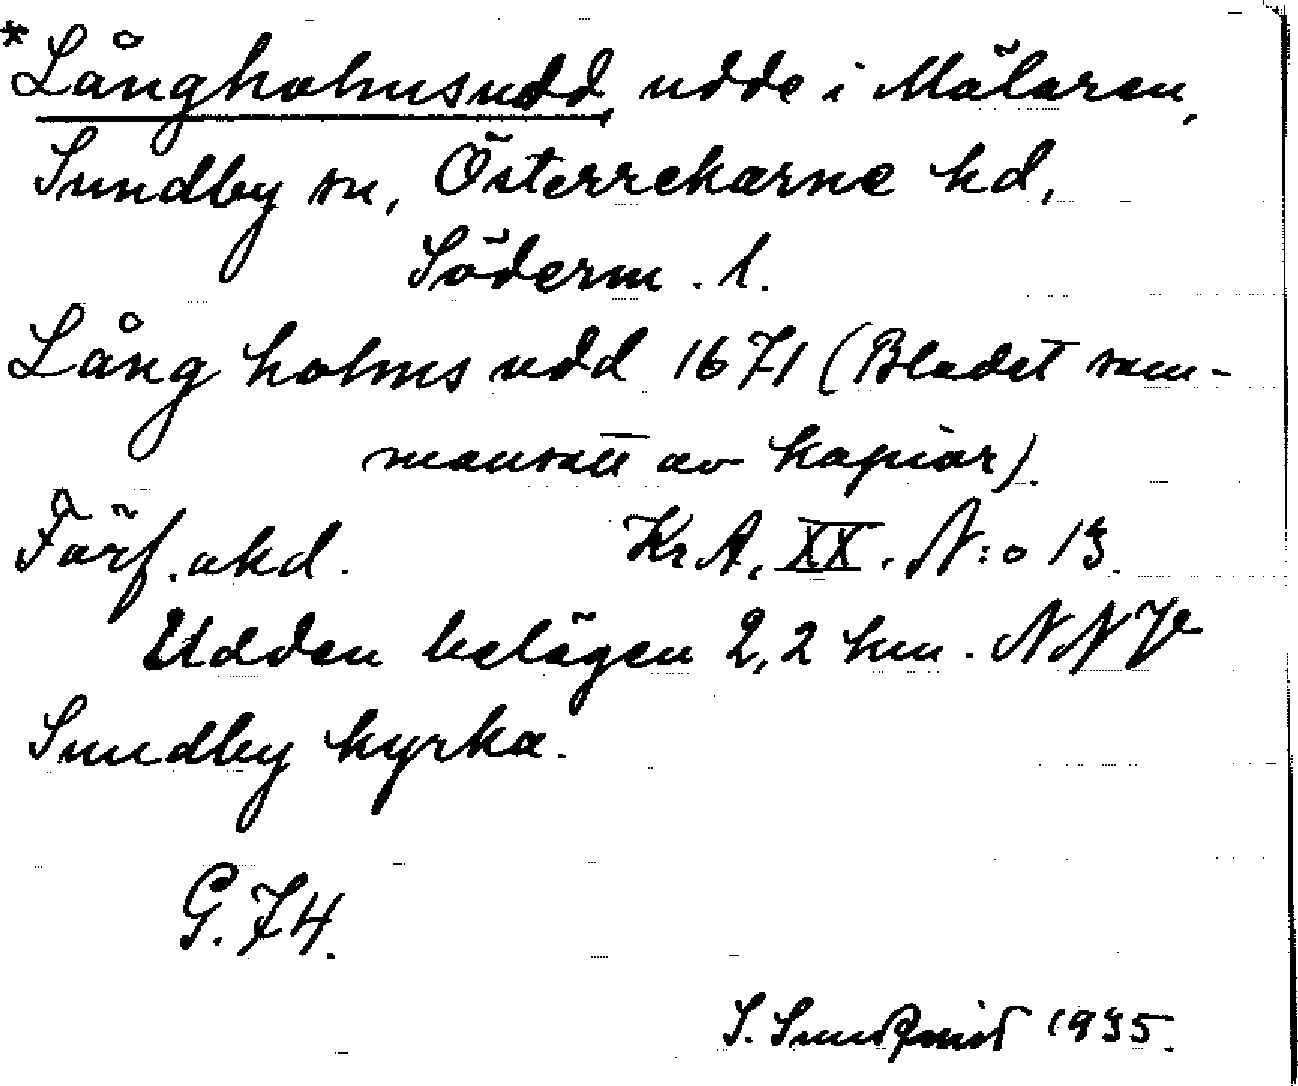 *Långholmsudd, udde i Mälaren,
Sundby sn, Österrekarne hd,
Söderm. l.
Lång holms udd 1671 (Bladet sam-
mansatt av kopior).
Förf. okd. Kr A. XX. N:o 13.
Udden belägen 2,2 km. NNV
Sundby kyrka.
G. 74.
S. Sundqvist 1935.